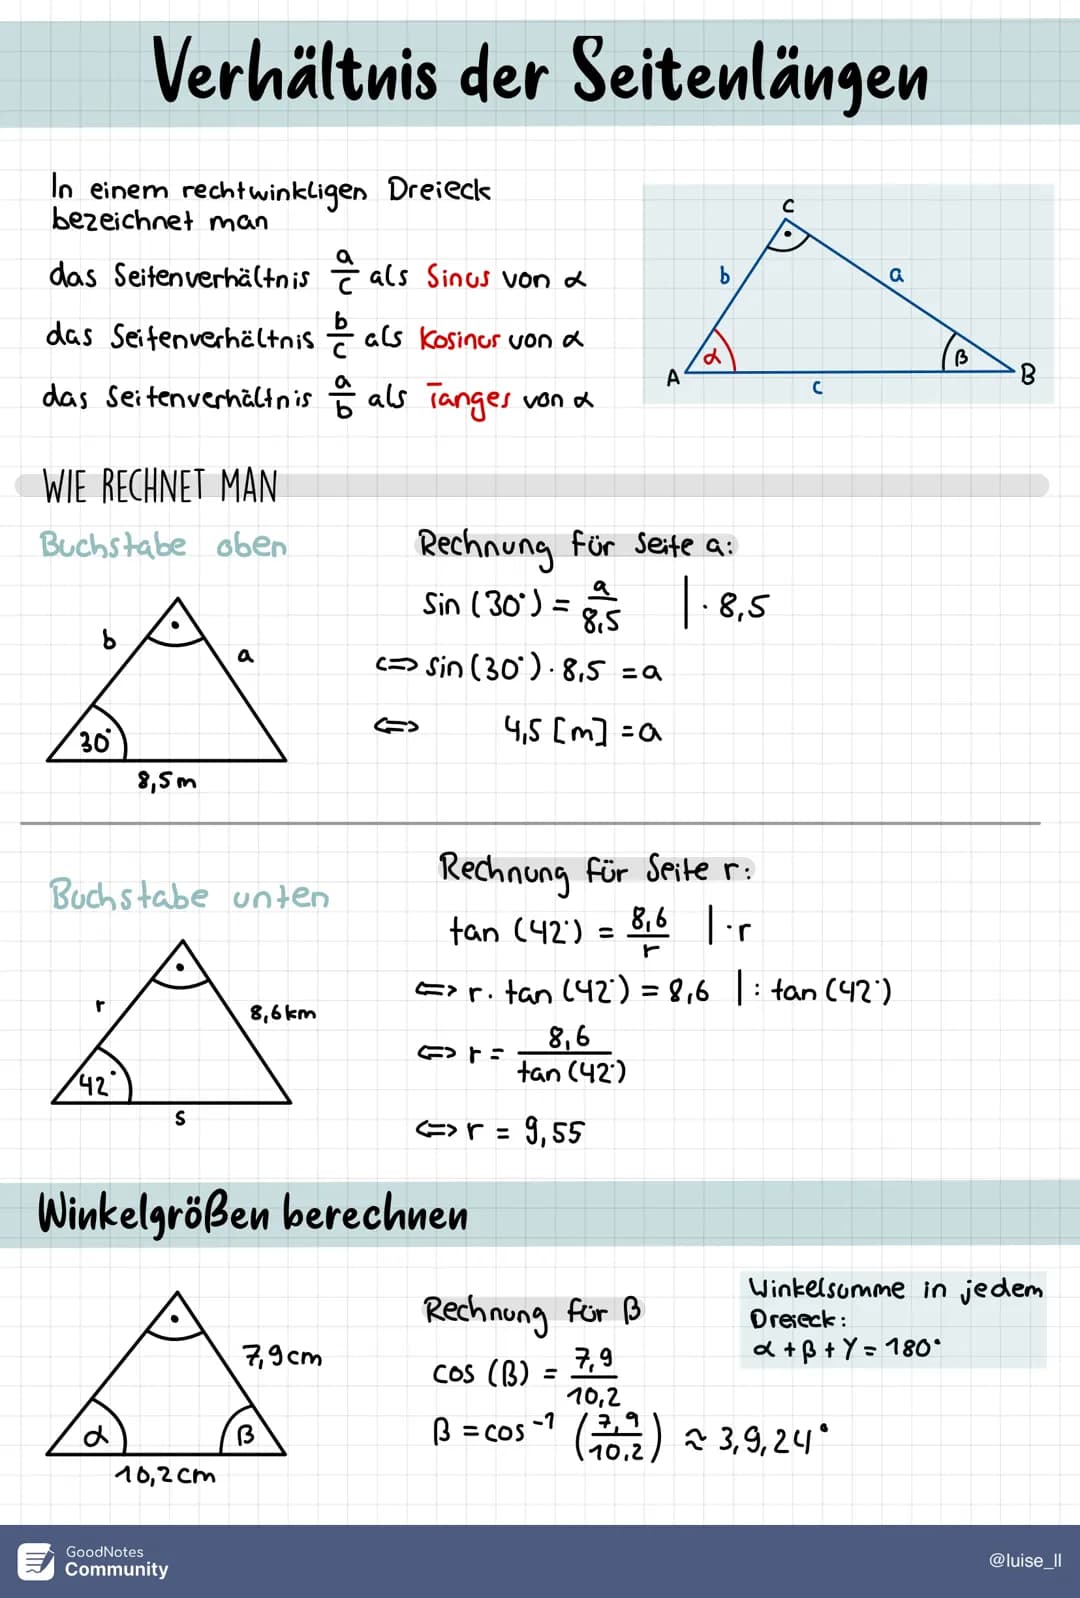 Verhältnis der Seitenlängen
In einem rechtwinkligen Dreieck
bezeichnet man
das Seitenverhältnis a/c als Sinus von α
das Seitenverhältnis b/c als Kosinus von α
das Seitenverhältnis a/b als Tanges von α
C
b
a
α
β
A
B
c
WIE RECHNET MAN
Buchstabe oben
b
a
30°
8,5m
Rechnung für Seite a:
Sin (30°) = a/8,5 | · 8,5
<=> sin (30°) · 8,5 = a
<=> 4,5 [m] = a
Buchstabe unten
r
8,6km
42°
s
Rechnung für Seite r:
tan (42°) = 8,6/r | · r
<=> r · tan (42°) = 8,6 | : tan (42°)
<=> r = 8,6/tan (42°)
<=> r = 9,55
Winkelgrößen berechnen
7,9cm
α
β
10,2cm
Rechnung für β
cos (β) = 7,9/10,2
β = cos⁻¹ (7,9/10,2) ≈ 3,9,24°
Winkelsumme in jedem
Dreieck:
α + β + γ = 180°
GoodNotes
Community
@luise_ll